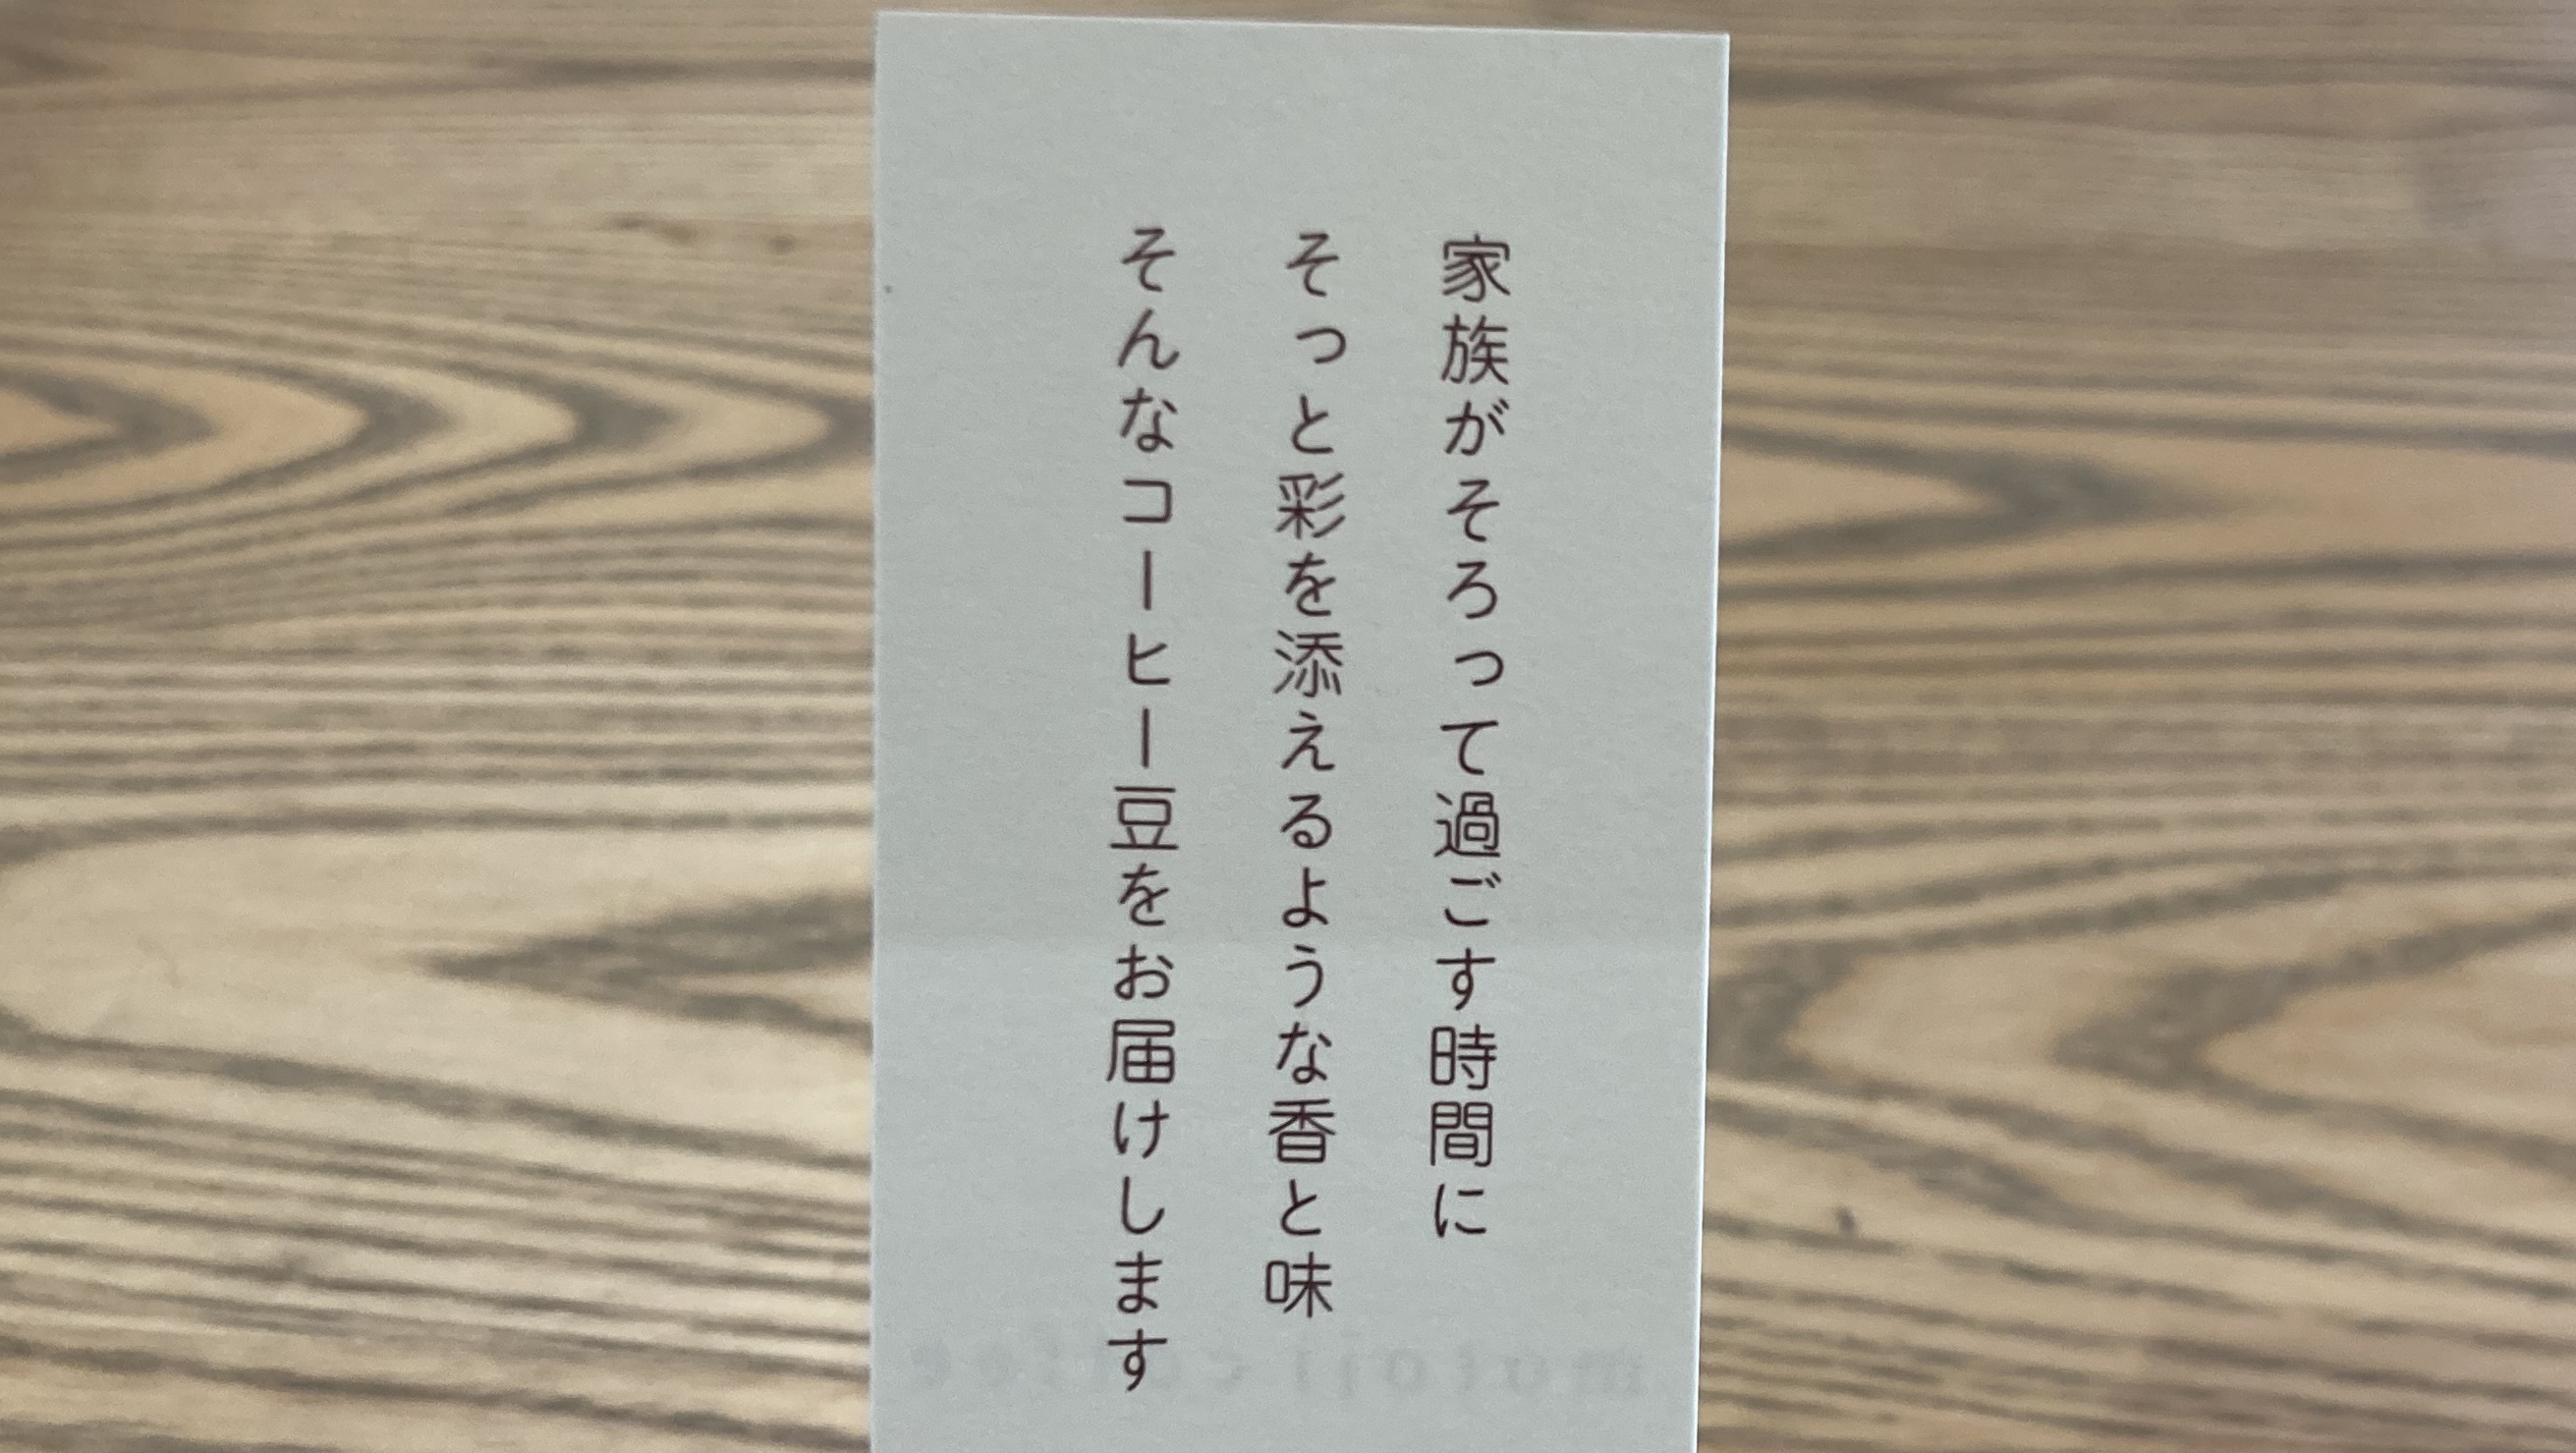 家族がそろって過ごす時間に
そっと彩を添えるような香と味
そんなコーヒー豆をお届けします